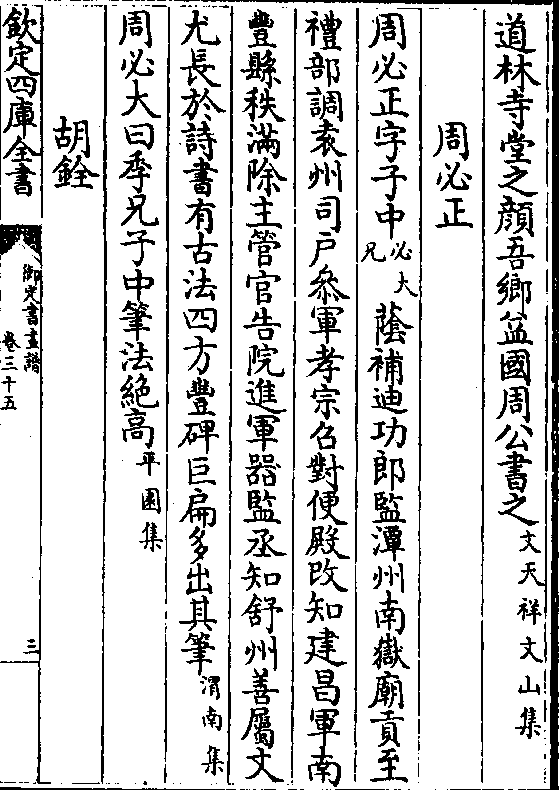 道林寺堂之顔吾鄉益國周公書之文天祥文山集
周必正
周必正字子中必大兄蔭補迪功郎監潭州南嶽廟貢至
禮部調袁州司戸叅軍孝宗召對便殿改知建昌軍南
豐縣秩滿除主管官告院進軍器監丞知舒州善屬文
尤長於詩書有古法四方豐碑巨扁多出其筆渭南集
周必大曰季兄子中筆法絶高平園集
胡銓
欽定四庫全書
御定書畫譜
卷三十五
三